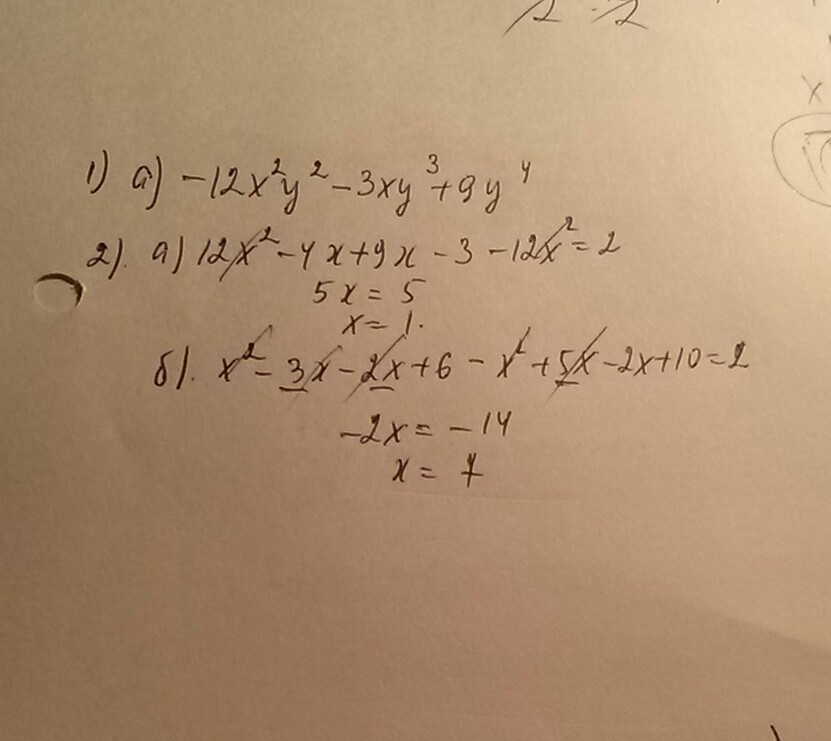 1) а) -12x²y² - 3xy³ + 9y⁴
2). а) 12x² - 4x + 9x - 3 - 12x² = 2
5x = 5
x = 1.
б). x² - 3x - 2x + 6 - x² + 5x - 2x + 10 = 2
-2x = -14
x = 7